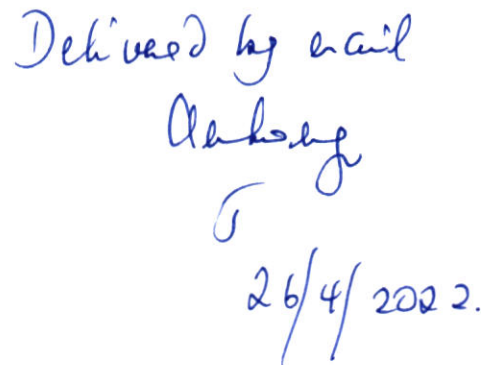 Delivered by email
26/4/2022.